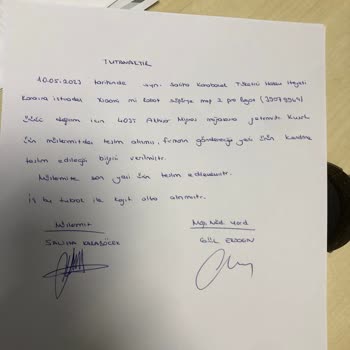 TUTANAKTIR
10.05.2023 tarihinde sayın Saliha Karaböcek Tüketici Hakem Heyeti
kararına istinaden Xiaomi mi Robot süpürge mop 2 pro beyaz (39079949)
ürünü değişim için 4027 Akhisar Migros mağazasına getirmiştir. Kusurlu
ürün müşterimizden teslim alınmış, firmanın göndereceği yeni ürün kendisine
teslim edileceği bilgisi verilmiştir.
Müşterimize son yeni ürün teslim edilecektir.
İş bu tutanak ile kayıt altına alınmıştır.
Müşterimiz
SALİHA KARABÖCEK
Mağ. Müd. Yard
GÜL ERDOĞAN